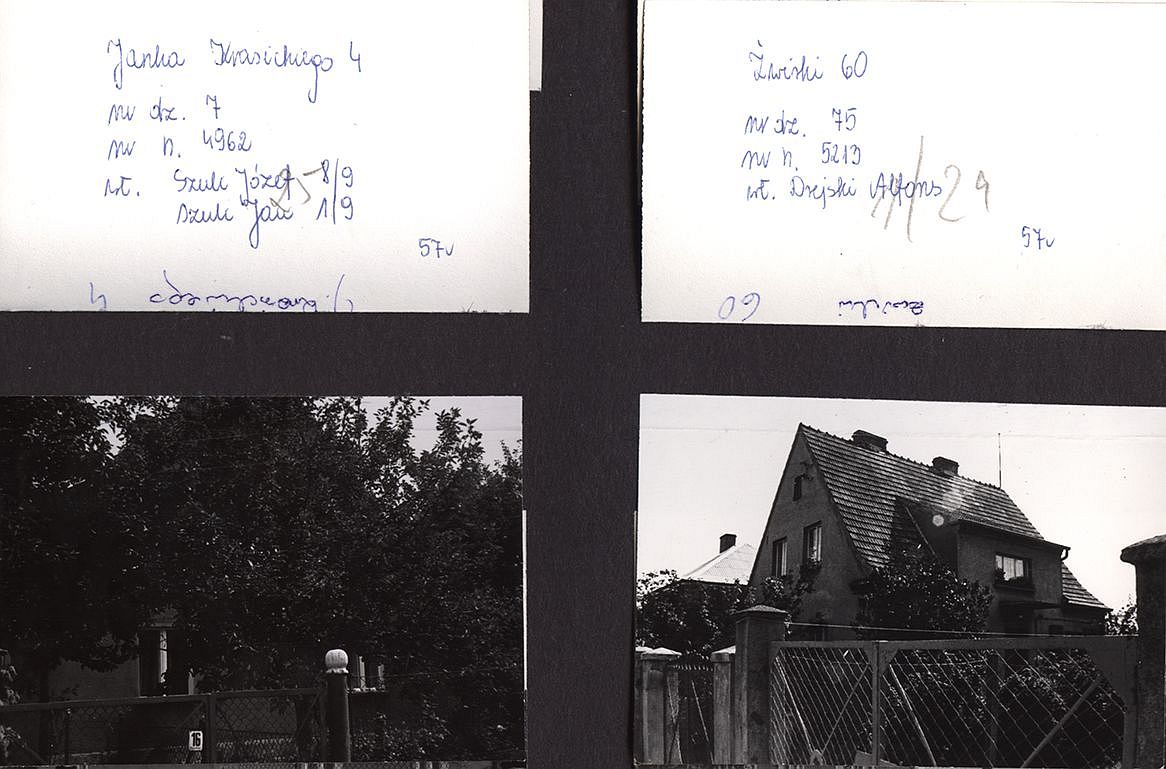 Janka Krasickiego 4
nr dz. 7
nr h. 4962
wł. Szulc Józef 8/9
Szulc Jan 1/9
25
57v
J. Krasickiego 4
Żwirki 60
nr dz. 75
nr h. 5213
wł. Drejski Alfons
24
57v
Żwirki 60
16